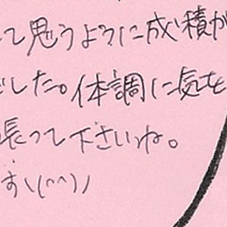 て思うように成績が
でした。体調に気を
張って下さいね。
す\(^^)丿